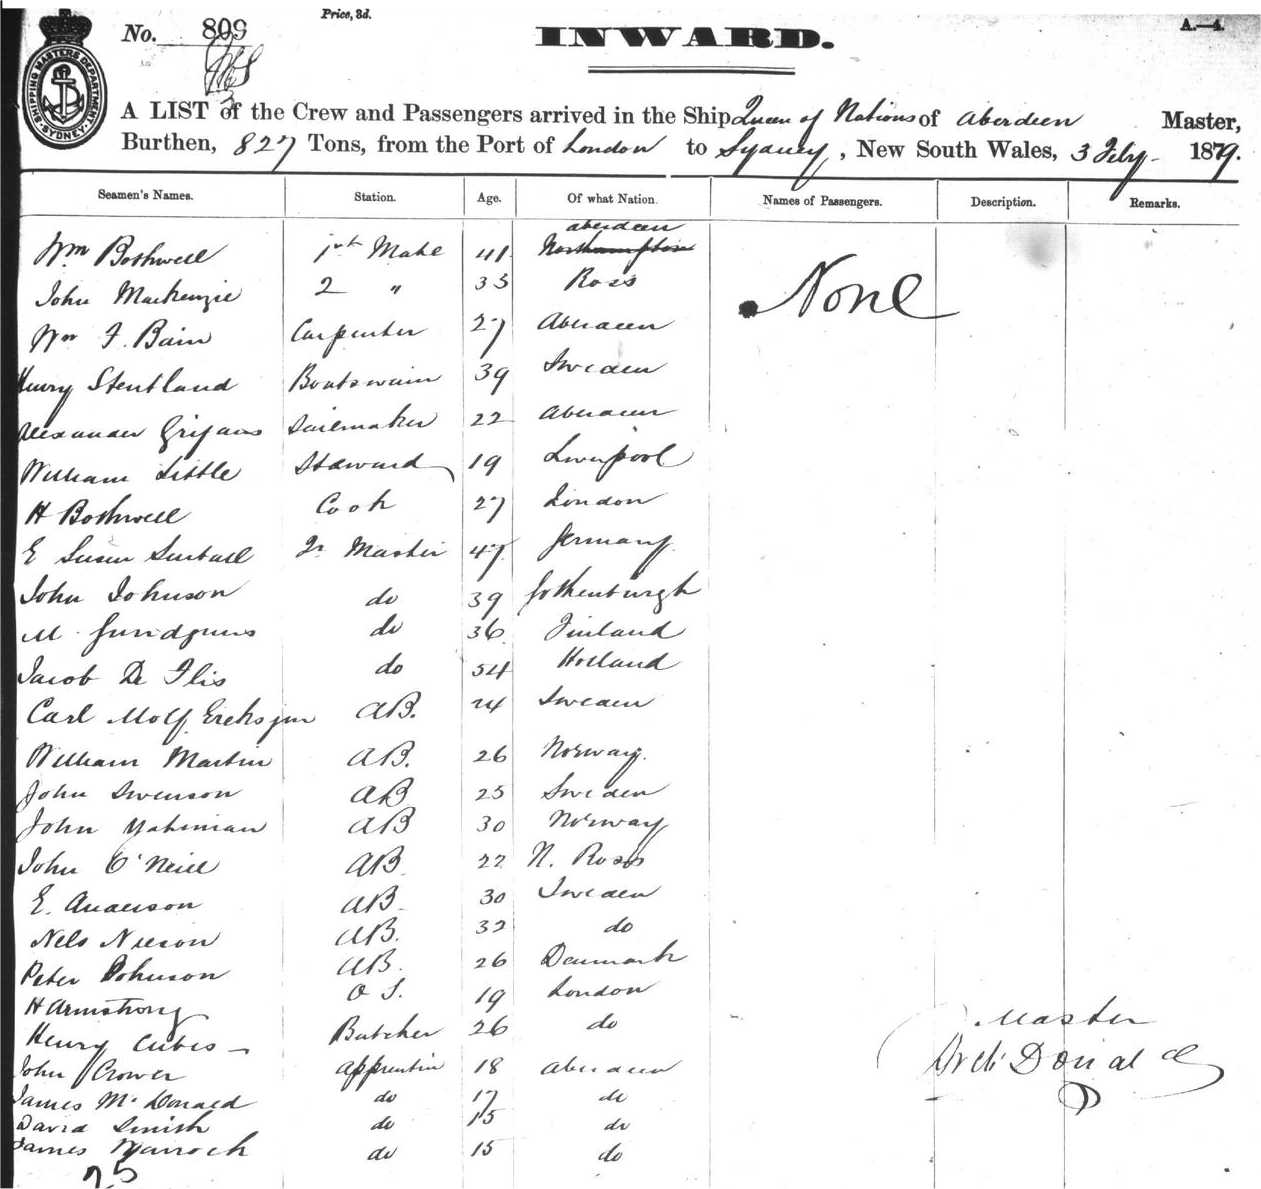 Price, 3d.
No. 809
INWARD.
A.—4.
SHIPPING MASTERS DEPARTMENT SYDNEY
A LIST of the Crew and Passengers arrived in the Ship Queen of Nations of Aberdeen Master,
Burthen, 827 Tons, from the Port of London to Sydney, New South Wales, 3 Feby 1879.
Seamen's Names. Station. Age. Of what Nation. Names of Passengers. Description. Remarks.
Wm Bothwell 1st Mate 41 Northampton aberdeen
John Mackenzie 2 " 33 Ross
None
Wm F. Bain Carpenter 27 Aberdeen
Henry Stentland Boatswain 39 Sweden
Alexander Sailmaker 22 Aberdeen
William Little Steward 19 Liverpool
H Bothwell Cook 27 London
E Master 47 Germany
John Johnson do 39 Gothenburgh
M do 36 Finland
Jacob De Flis do 54 Holland
Carl AB. 24 Sweden
William Martin AB. 26 Norway.
John Swenson AB 25 Sweden
John AB 30 Norway
John O'Neill AB 22 N. Ross
E. Anderson AB 30 Sweden
Nels AB. 32 do
Peter Johnson AB. 26 Denmark
H Armstrong O S. 19 London
Henry Butcher 26 do
John Crower apprentice 18 aberdeen
James McDonald do 17 do
David Smith do 15 do
James do 15 do
25
Master
Archd Donald